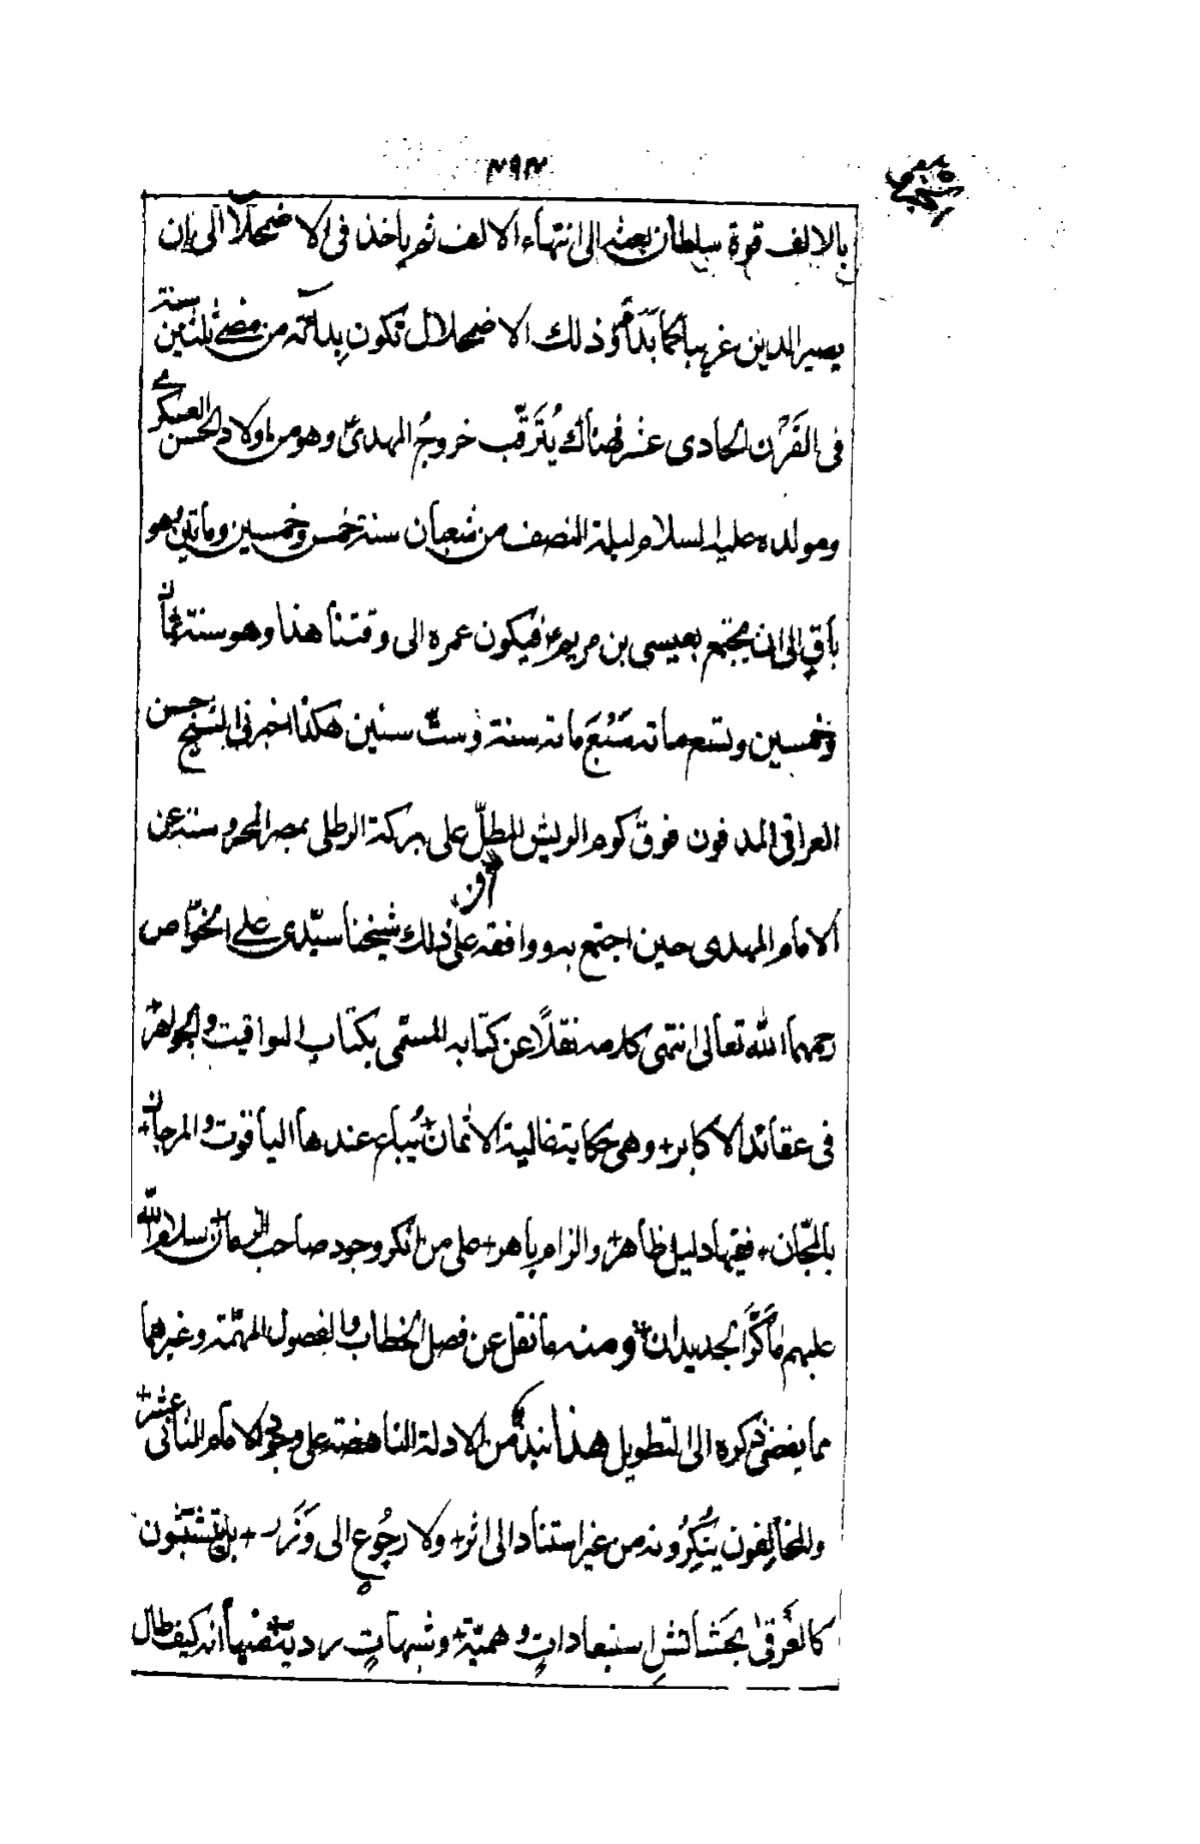 ٢٩٣
بالالف قوة سلطان بعثه الى انتهاء الالف ثم ياخذ فى الاضمحلال الى ان
يصير الدين غريبا كما بدأ وذلك الاضمحلال تكون بدائته من مضى ثلثين سنة
فى القَرْن الحادى عشر فهناك يُتَرَقّب خروجُ المهدىّ وهو من اولاد الحسن العسكرى
ومولده عليه السلام ليلة النصف من شعبان سنة خمس وخمسين ومأتين وهو
باقٍ الى ان يجتمع بعيسى بن مريم ع فيكون عمره الى وقتنا هذا وهو سنة ثمان
وخمسين وتسعمائه سَبْعَ مائه سنة وستّ سنين هكذا اخبرنى الشيخ حسن
العراقى المدفون فوق كوم الريش المطلّ على بركة الرطلى بمصر المحروسة عن
الامام المهدى حين اجتمع به ووافقه على ذلك شيخنا سيّدى على الخوّاص
رحمهما الله تعالى انتهى كلامه نقلًا عن كتابه المسمّى بكتاب اليواقيت والجواهر+
فى عقائد الاكابر+ وهى حكاية غالية الاثمان+ يُباع عندها الياقوت والمرجان+
بالمجّان+ ففيها دليل ظاهر+ والزام باهر+ على من انكر وجود صاحب الزمان+ سلام الله
عليهم ما كَرَّ الجديدان+ ومنه ما نقل عن فصل الخطاب والفصول المهمّة وغيرهما
مما يفضى ذكره الى التطويل هذا نبذة من الادلة الناهضة على وجود الامام الثانى عشر+
والمخالِفون يُنْكِرُونه من غير استناد الى اثر+ ولا رجُوعٍ الى وَزَر+ بل يتشبّثون
كالغَرقىٰ بحَشائشِ استبعاداتٍ وهميّة+ وشبهاتٍ رديّة+ فمنها انه كيف طال